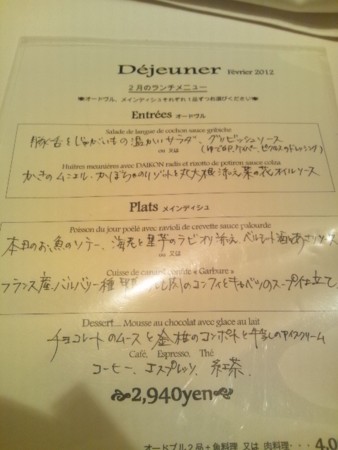 Déjeuner Février 2012
2月のランチメニュー
●オードヴル、メインディッシュそれぞれ1品ずつお選びください●
Entrées オードヴル
Salade de langue de cochon sauce gribiche
豚舌とじゃがいもの温かいサラダ、グリビッシュソース
ou 又は
(ゆで卵,ケイパー,ピクルスのドレッシング)
Huîtres meunières avec DAIKON radis et risotto de potiron sauce colza
かきのムニエル、かぼちゃのリゾットと丸大根添え 菜の花オイルソース
Plats メインディッシュ
Poisson du jour poêlé avec ravioli de crevette sauce palourde
本日のお魚のソテー、海老と里芋のラビオリ添え、ベルモット酒
ou 又は
Cuisse de en « Garbure »
フランス産バルバリー種 のコンフィとキャベツのスープ仕立て
Dessert... Mousse au chocolat avec glace au lait
チョコレートのムースと金柑のコンポートと牛乳のアイスクリーム
Café, Espresso, Thé
コーヒー、エスプレッソ、紅茶
2,940yen
オードブル2品+魚料理 又は 肉料理・・・4,0